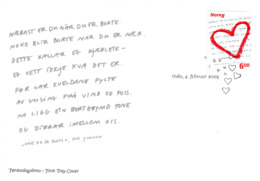 NÆRAST ER DU NÅR DU ER BORTE.
NOKO BLIR BORTE NÅR DU ER NÆR
DETTE KALLAR EG KJÆRLEIK –
EG VEIT IKKJE KVA DET ER.
FØR VAR KVELDANE FYLTE
AV SUSING FRÅ VIND OG FOSS.
NO LIGG EIN BORTGØYMD TONE
OG DIRRAR IMELLOM OSS.
Noreg
6,00
Oslo, 6. februar 2004
Førstedagsbrev – First Day Cover